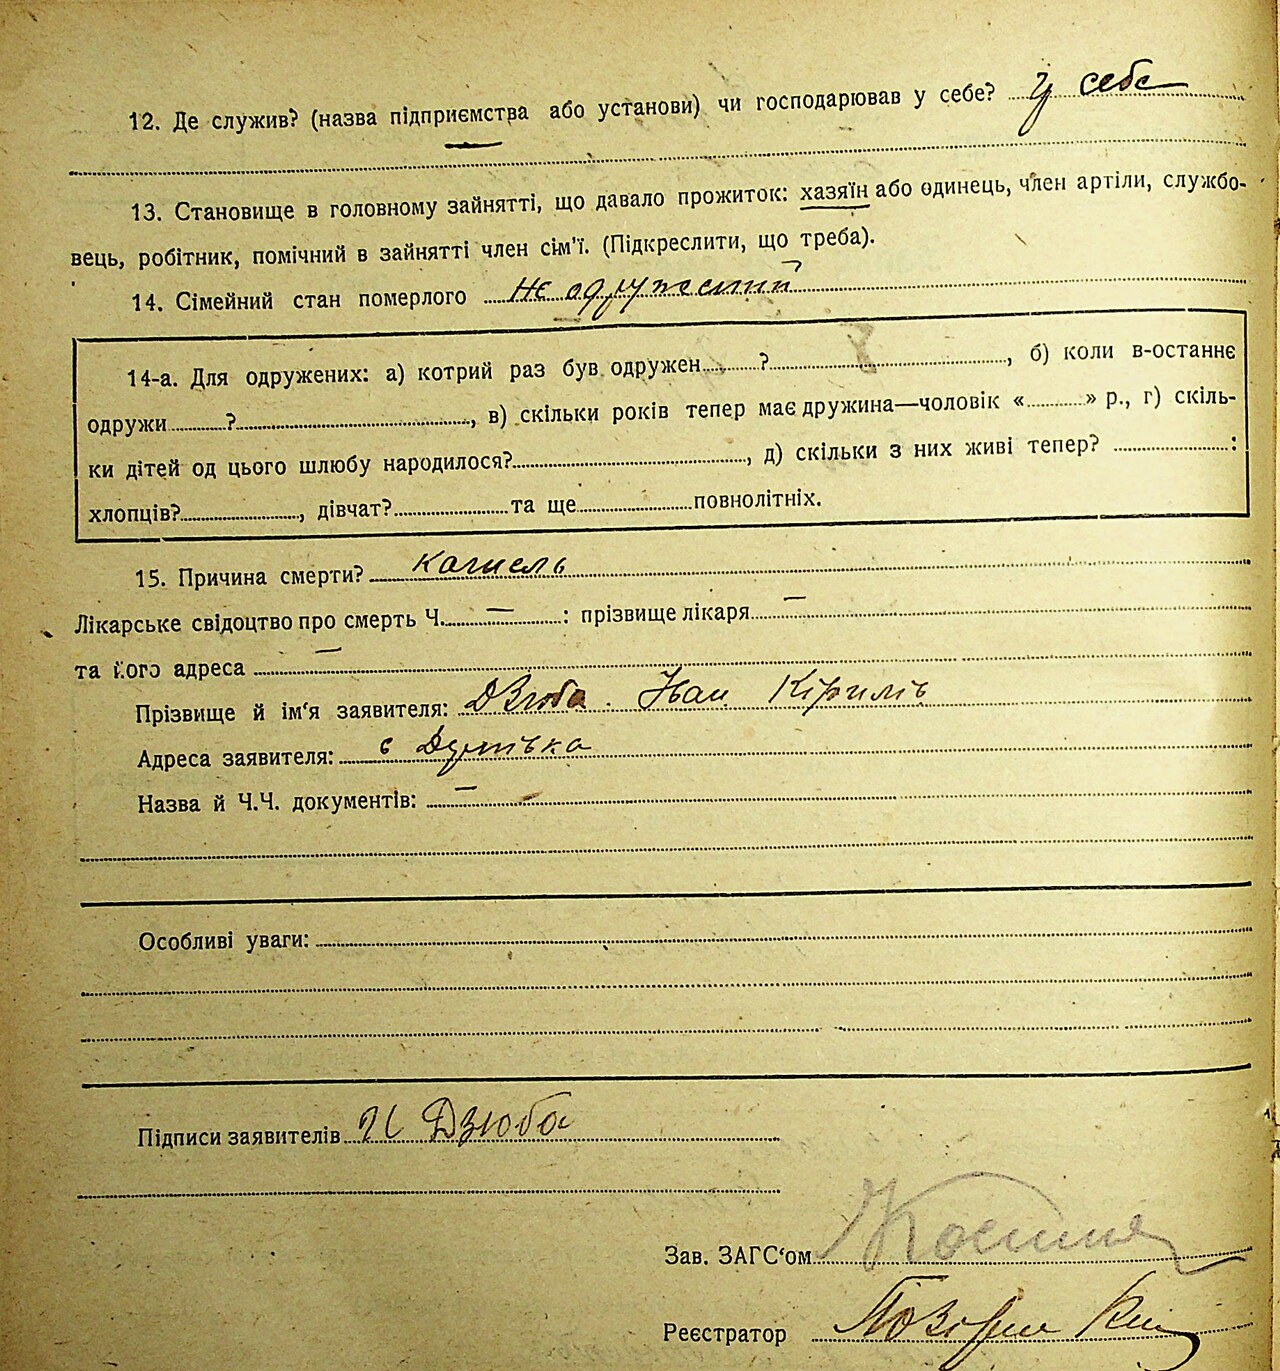 12. Де служив? (назва підприємства або установи) чи господарював у себе? у себе
13. Становище в головному зайнятті, що давало прожиток: хазяїн або одинець, член артіли, службо-
вець, робітник, помічний в зайнятті член сім'ї. (Підкреслити, що треба).
14. Сімейний стан померлого Не одружений
14-а. Для одружених: а) котрий раз був одружен ? , б) коли в-останнє
одружи ? , в) скільки років тепер має дружина—чоловік « » р., г) скіль-
ки дітей од цього шлюбу народилося? , д) скільки з них живі тепер? :
хлопців? , дівчат? та ще повнолітніх.
15. Причина смерти? Кашель
Лікарське свідоцтво про смерть Ч. — : прізвище лікаря —
та його адреса —
Прізвище й ім'я заявителя: Дзюба Іван Кірилів
Адреса заявителя: с
Назва й Ч.Ч. документів: —
Особливі уваги:
Підписи заявителів І Дзюба
Зав. ЗАГС'ом
Реєстратор